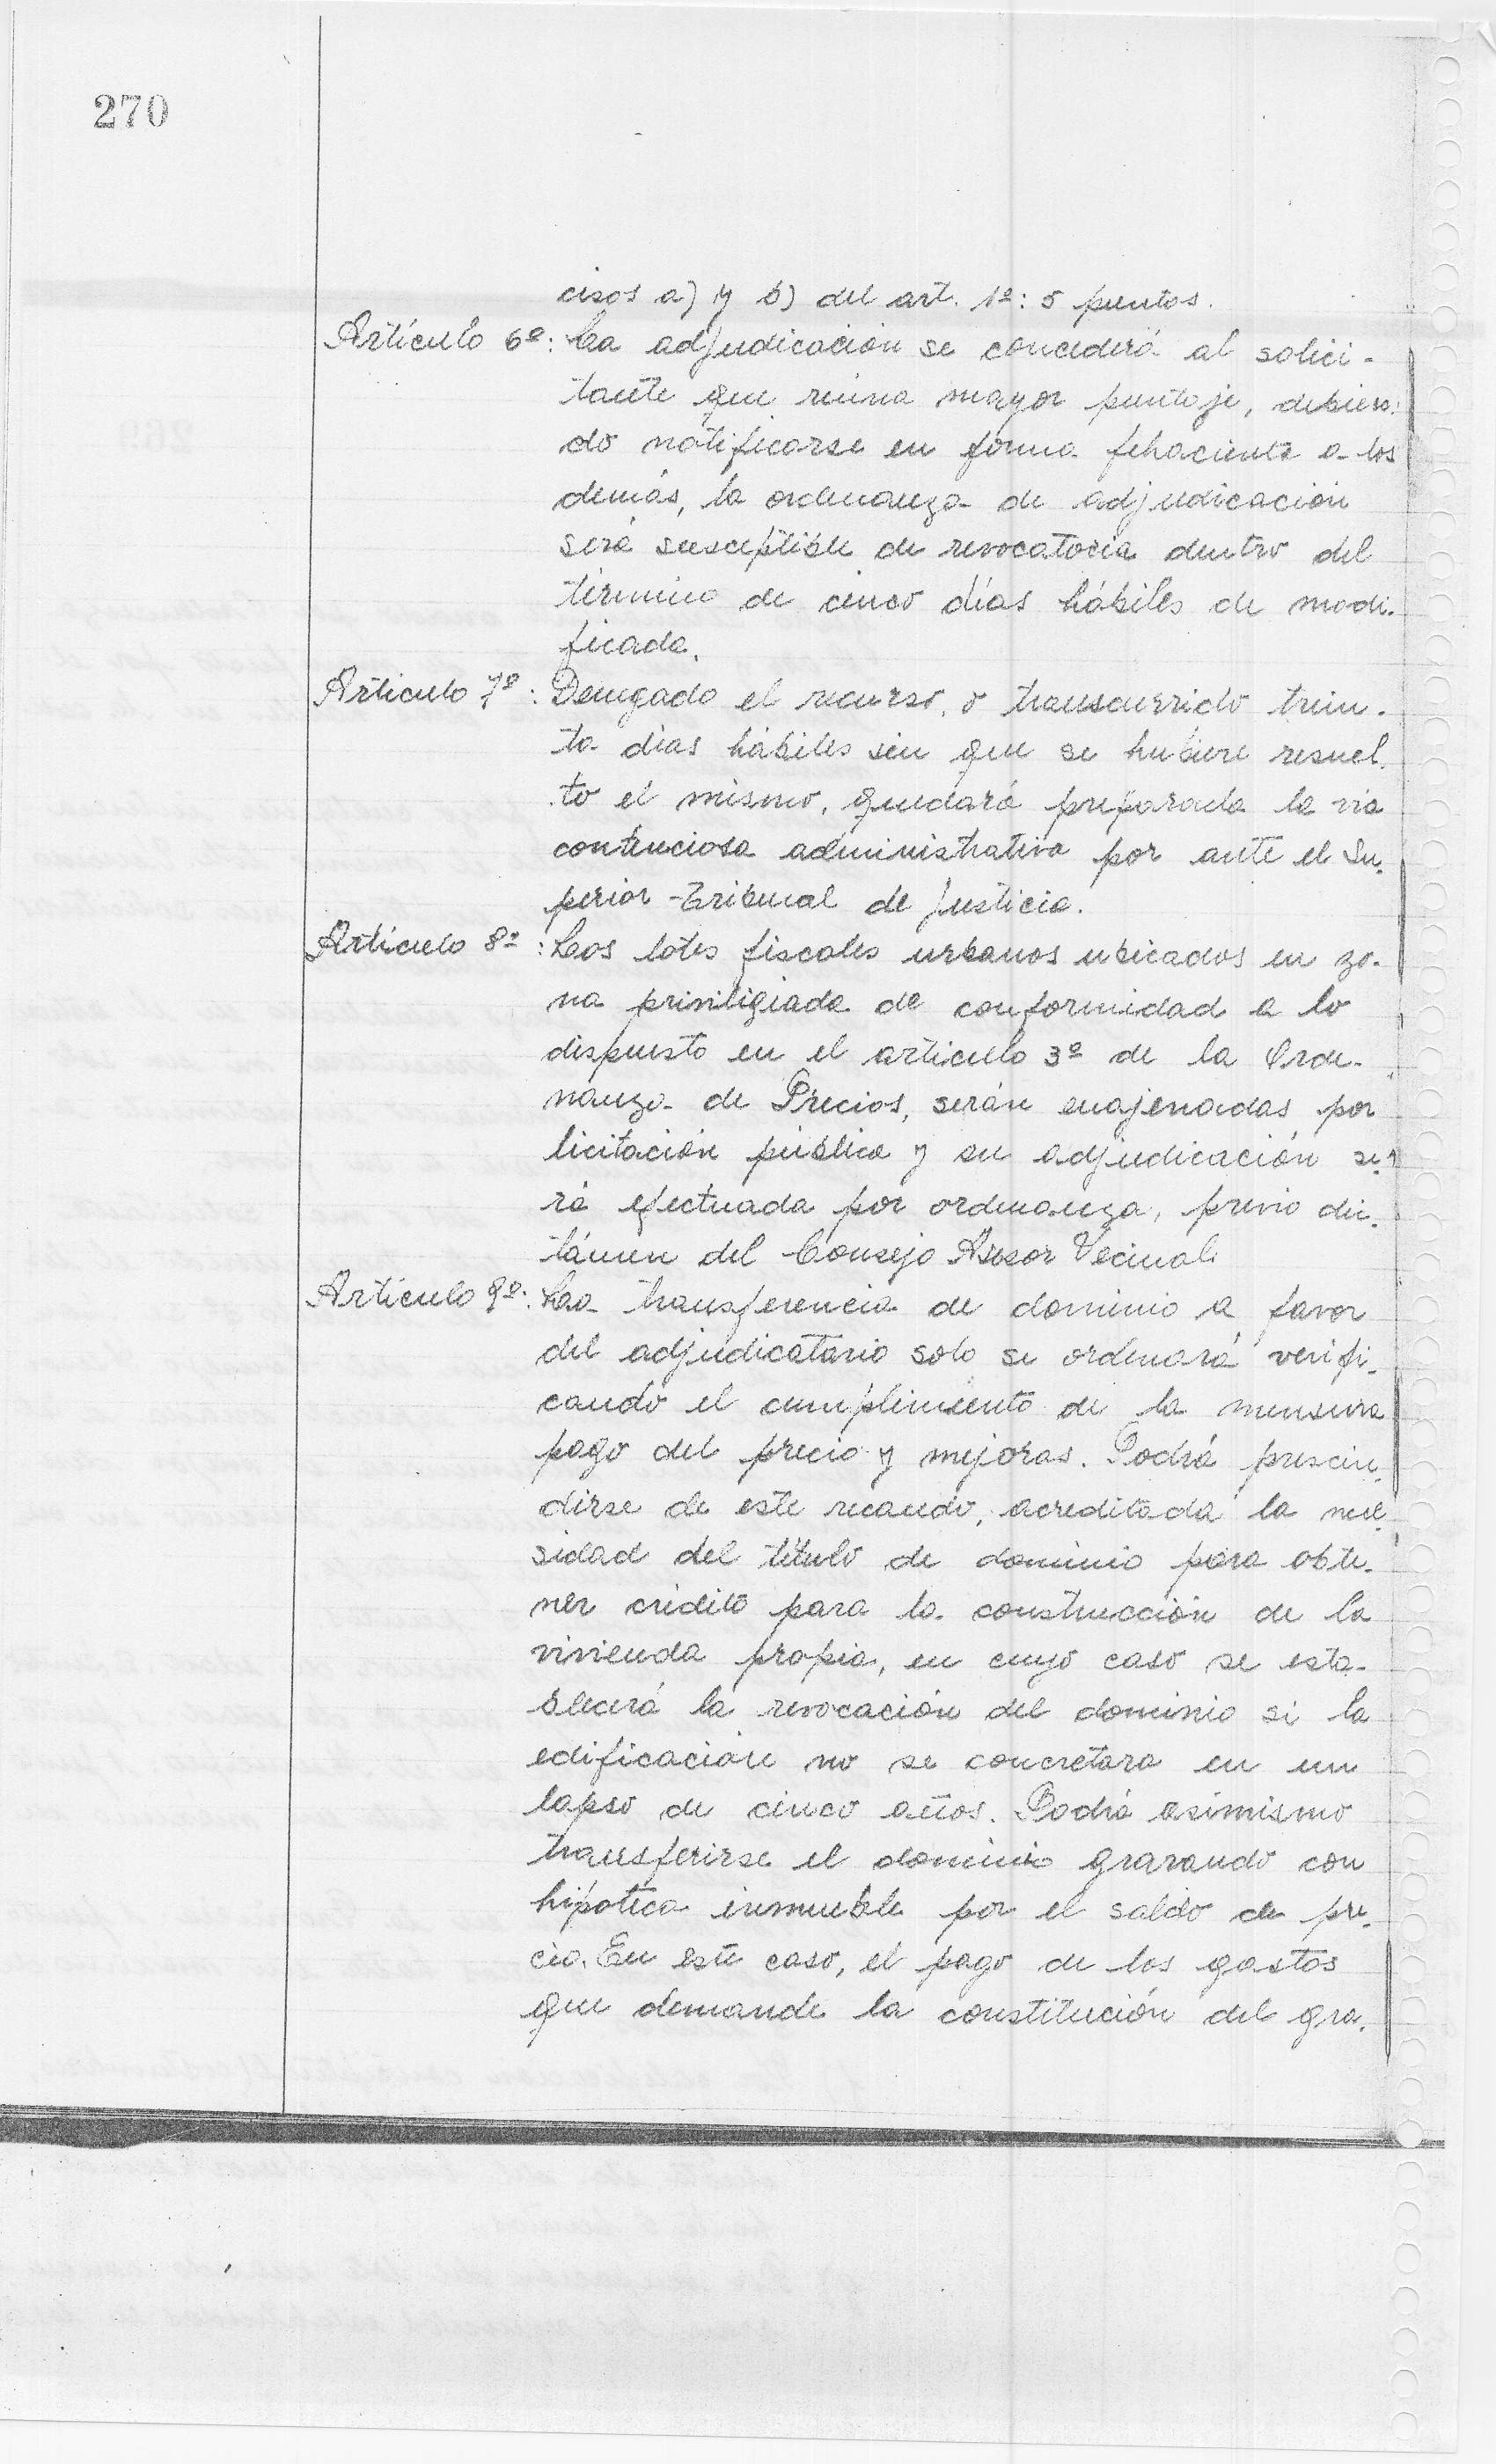 270
cisos a) y b) del art. 1º: 5 puntos.
Artículo 6º: La adjudicación se concederá al solici-
tante que reúna mayor puntaje, debien-
do notificarse en forma fehaciente a los
demás, la ordenanza de adjudicación
será susceptible de revocatoria dentro del
término de cinco días hábiles de modi-
ficada.
Artículo 7º: Denegado el recurso, o transcurrido trein-
ta días hábiles sin que se hubiere resuel-
to el mismo, quedará preparada la via
contenciosa administrativa por ante el Su-
perior Tribunal de Justicia.
Artículo 8º: Los lotes fiscales urbanos ubicados en zo-
na priviligiada de conformidad a lo
dispuesto en el artículo 3º de la Orde-
nanza de Precios, serán enajenadas por
licitación pública y su adjudicación se-
rá efectuada por ordenanza, previo dic-
támen del Consejo Asesor Vecinal.
Artículo 9º: La transferencia de dominio a favor
del adjudicatario solo se ordenará verifi-
cando el cumplimiento de la mensura
pago del precio y mejoras. Podrá prescin-
dirse de este recaudo, acreditada la nece-
sidad del título de dominio para obte-
ner crédito para la construcción de la
vivienda propia, en cuyo caso se esta-
blecerá la revocación del dominio si la
edificación no se concretara en un
lapso de cinco años. Podrá asimismo
transferirse el dominio gravando con
hipoteca inmueble por el saldo de pre-
cio. En este caso, el pago de los gastos
que demande la constitución del gra-